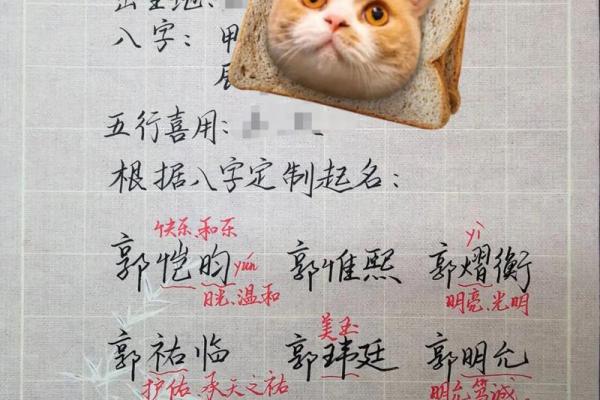 出生地:
八字: 甲
辰
五行喜用:
根据八字定制起名:
快乐、和乐 yì
郭恺昀 yún 郭惟熙 郭熠衡
日光、温和 明亮、光明
美玉
郭祐临 郭玮廷 郭明允
护佑、承天之祐 明允笃诚